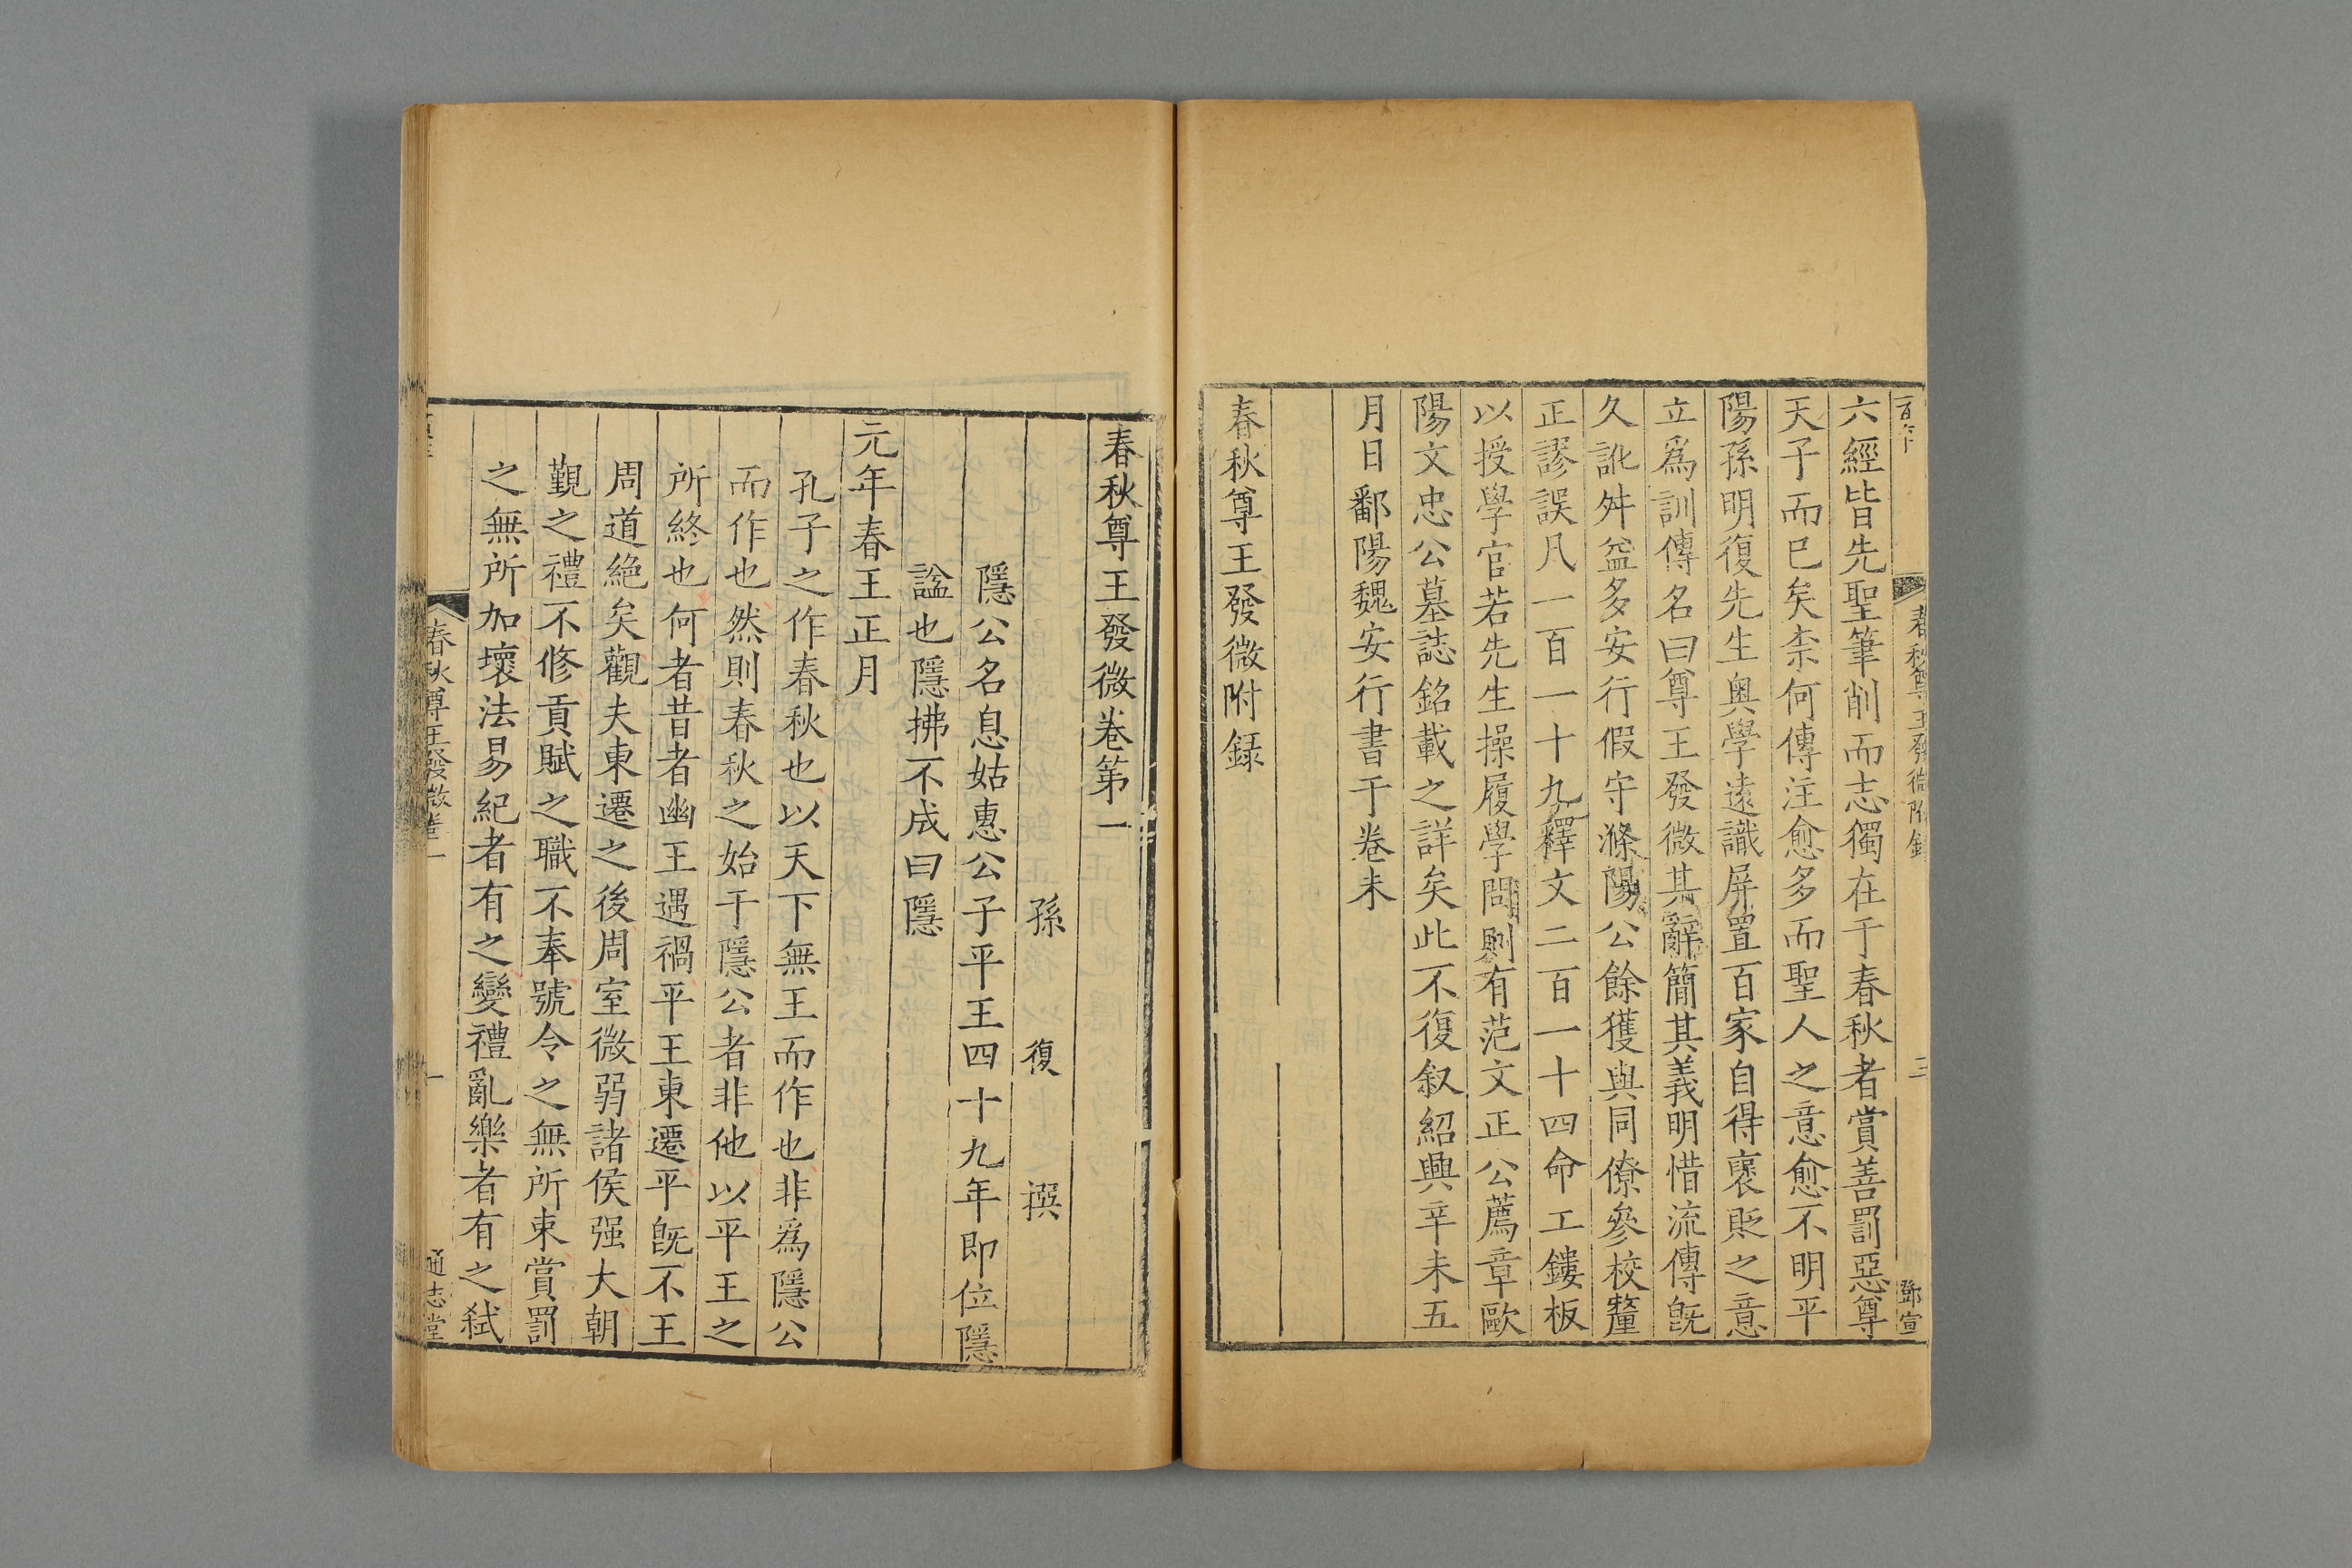 六經皆先聖筆削而志獨在于春秋者賞善罰惡尊
天子而已矣柰何傳注愈多而聖人之意愈不明平
陽孫明復先生奥學遠識屏置百家自得褒貶之意
立爲訓傳名曰尊王發微其辭簡其義明惜流傳旣
久訛舛益多安行假守滁陽公餘獲與同僚參校釐
正謬誤凡一百一十九釋文二百一十四命工鏤板
以授學官若先生操履學問則有范文正公薦章歐
陽文忠公墓誌銘載之詳矣此不復叙紹興辛未五
月日鄱陽魏安行書于卷末
春秋尊王發微附録
春秋尊王發微附録
二
鄧宣
春秋尊王發微卷第一
孫復撰
隱公名息姑惠公子平王四十九年即位隱
諡也隱拂不成曰隱
元年春王正月
孔子之作春秋也以天下無王而作也非爲隱公
而作也然則春秋之始于隱公者非他以平王之
所終也何者昔者幽王遇禍平王東遷平旣不王
周道絶矣觀夫東遷之後周室微弱諸侯强大朝
覲之禮不修貢賦之職不奉號令之無所束賞罰
之無所加壞法易紀者有之變禮亂樂者有之弑
春秋尊王發微卷一
一
通志堂